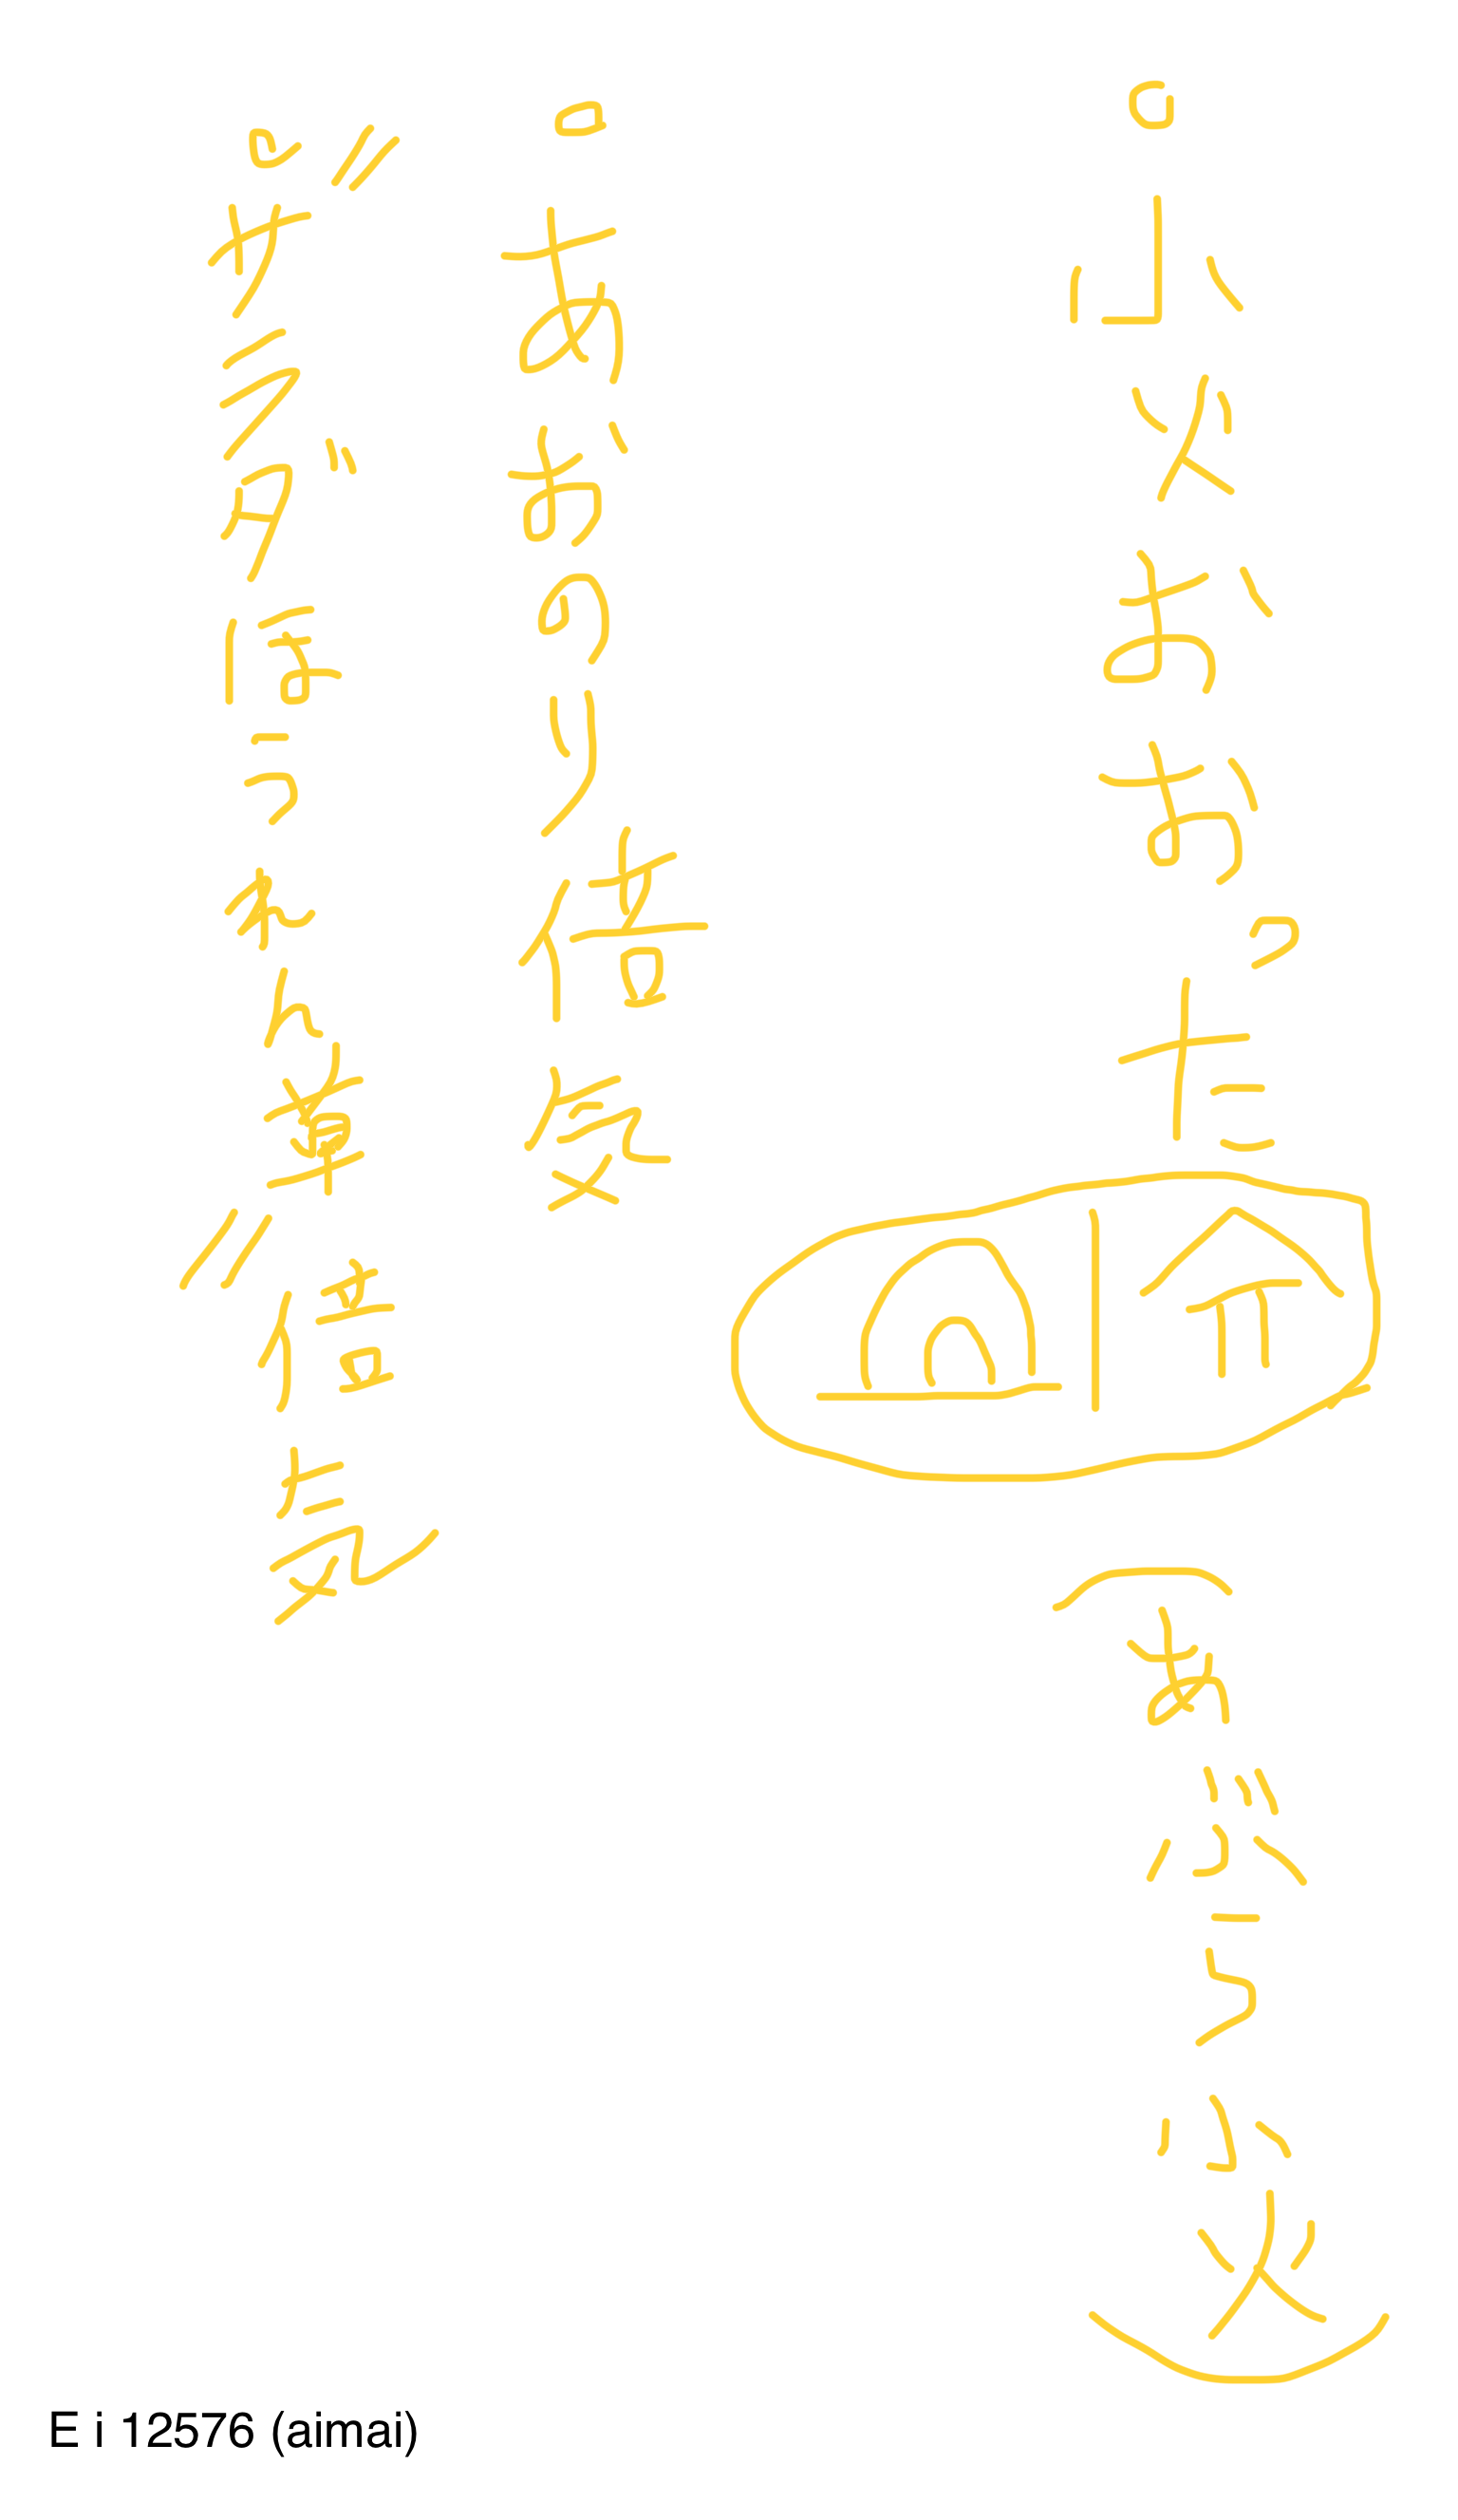 。小火おおった
(あぶら小火)
。あおのり倍気
。〃サラダほうれん草〃倍気
E i 12576 (aimai)